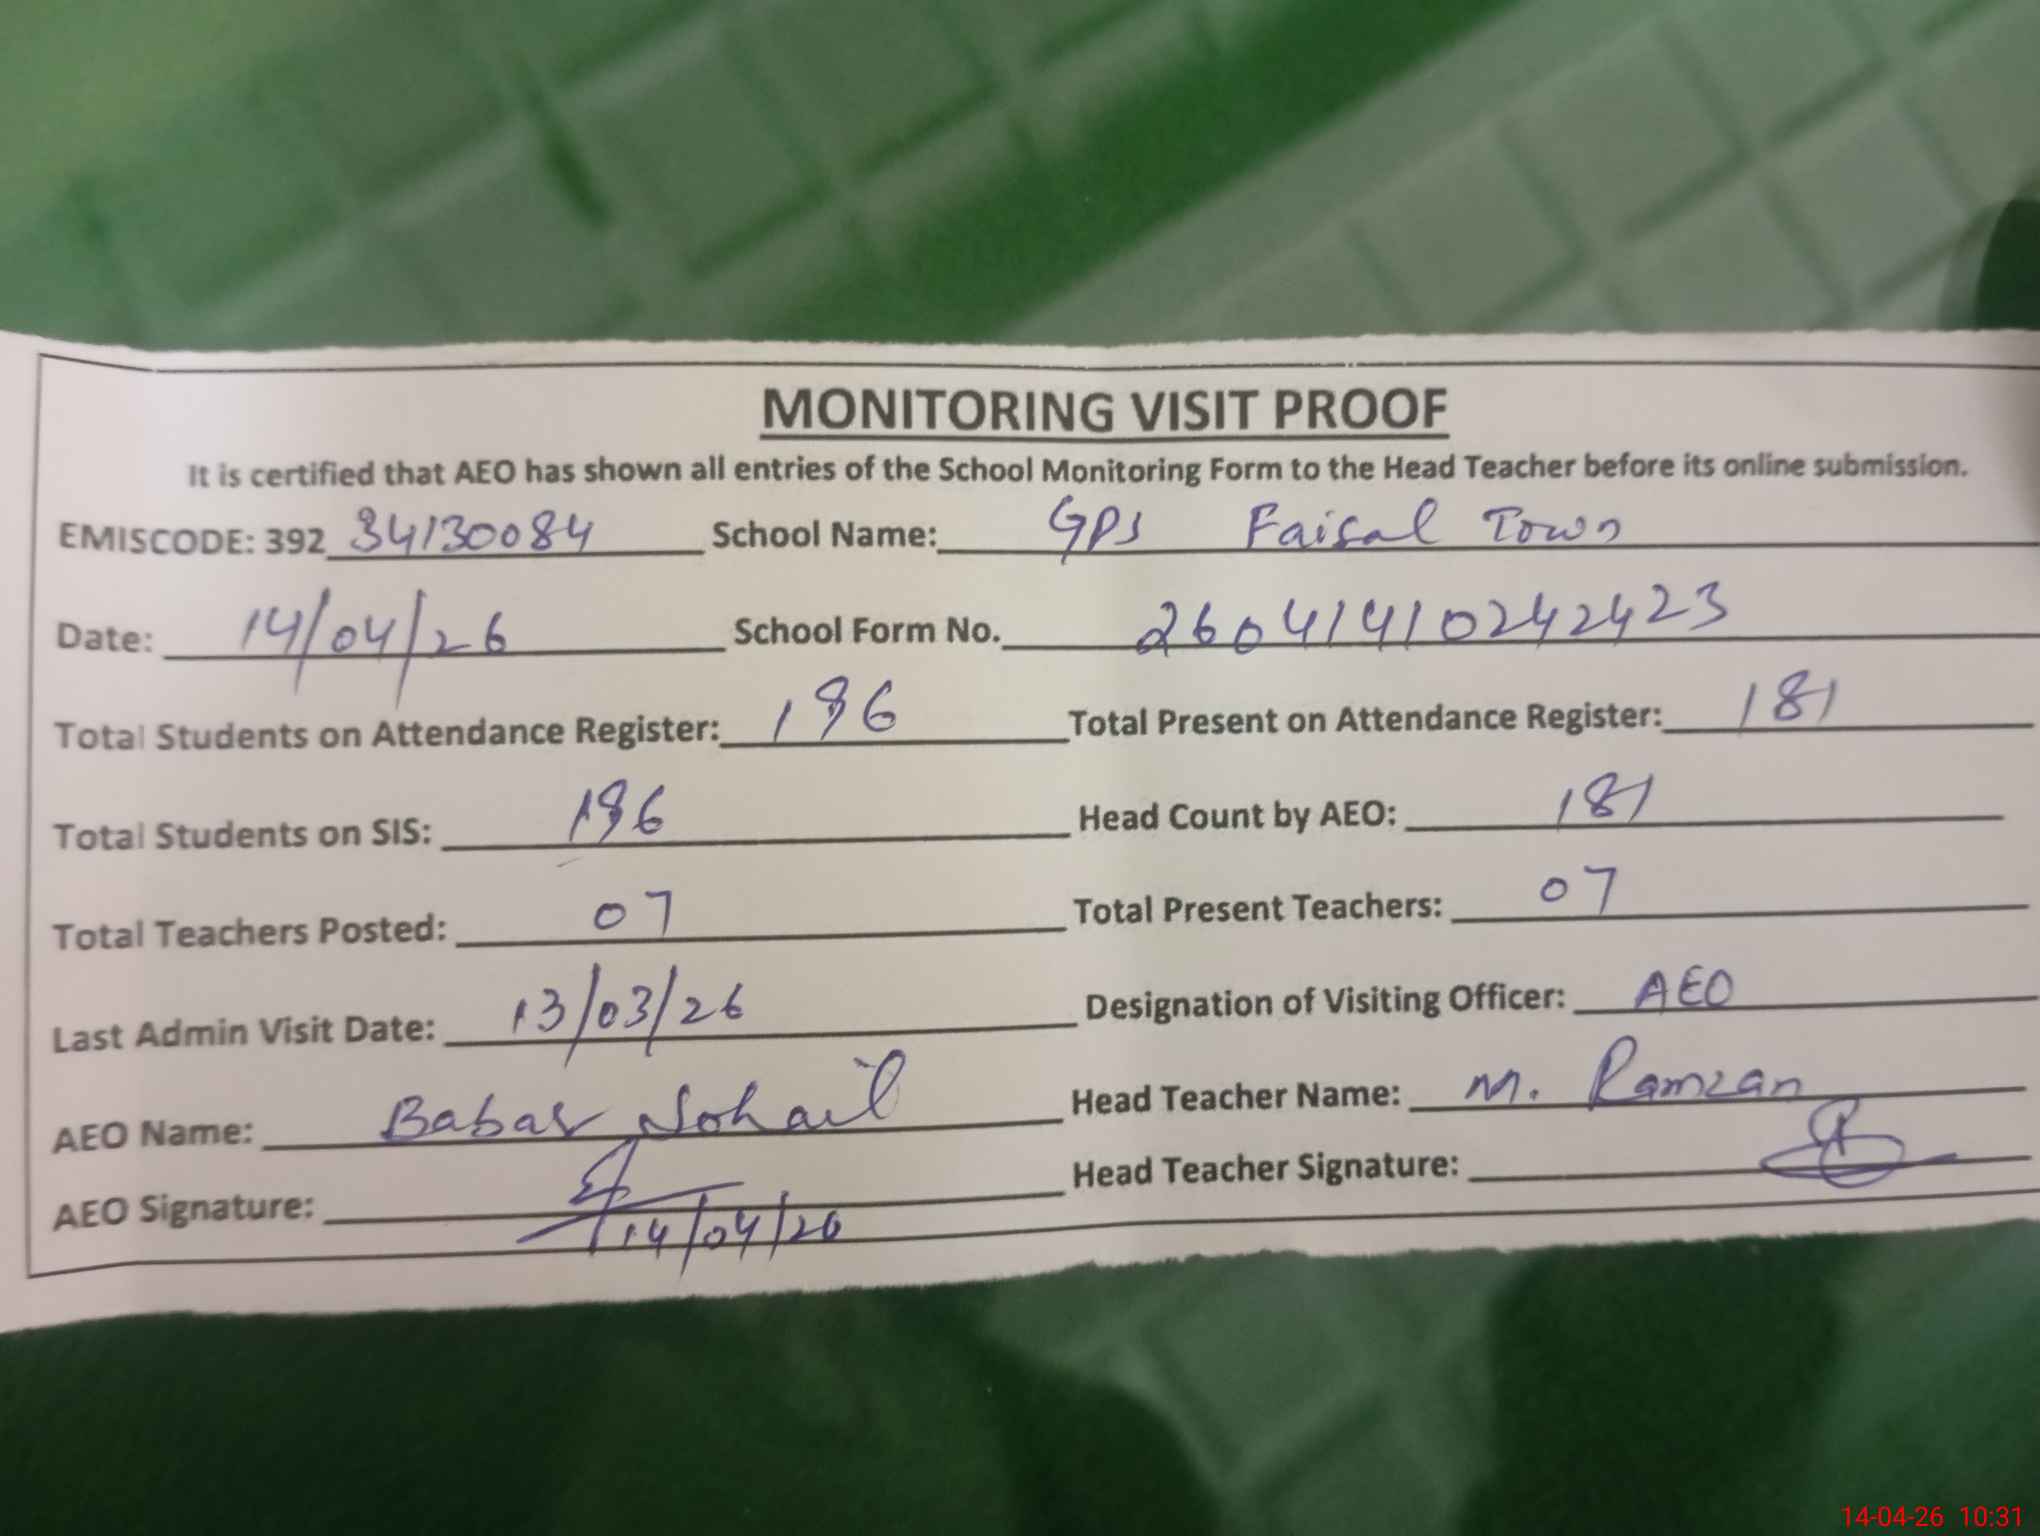 MONITORING VISIT PROOF
It is certified that AEO has shown all entries of the School Monitoring Form to the Head Teacher before its online submission.
EMISCODE: 392 34130084 School Name: GPS Faisal Town
Date: 14/04/26 School Form No. 26041410242423
Total Students on Attendance Register: 196 Total Present on Attendance Register: 181
Total Students on SIS: 196 Head Count by AEO: 181
Total Teachers Posted: 07 Total Present Teachers: 07
Last Admin Visit Date: 13/03/26 Designation of Visiting Officer: AEO
AEO Name: Babar Sohail Head Teacher Name: M. Ramzan
AEO Signature: Head Teacher Signature:
14/04/26
14-04-26 10:31